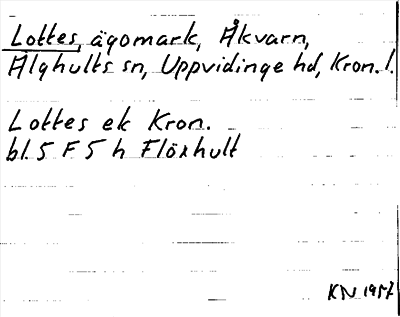 Lottes, ägomark, Åkvarn,
Älghults sn, Uppvidinge hd, Kron. l.
Lottes ek Kron.
bl. 5 F 5 h Flöxhult
KN 1957